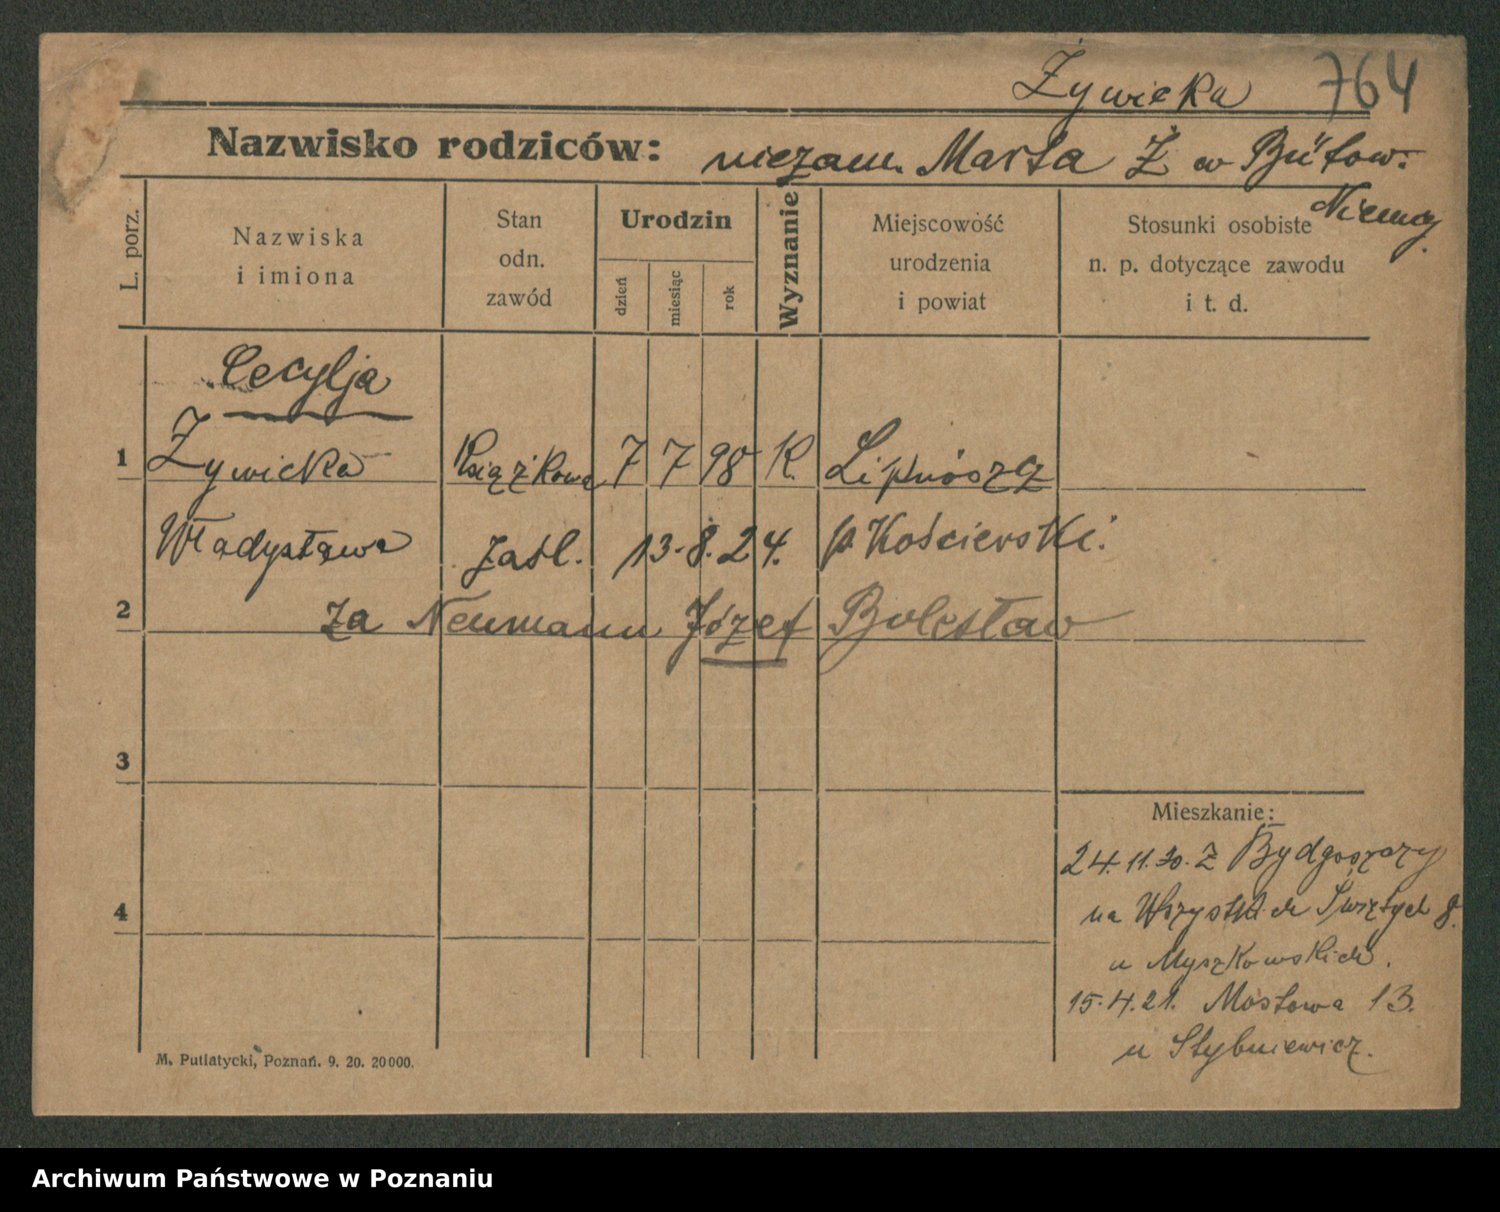 Żywicka 764
Nazwisko rodziców: niezam. Marta Ż w Bütow.
Niemcy.
L. porz.
Nazwiska
i imiona
Stan
odn.
zawód
Urodzin
dzień
miesiąc
rok
Wyznanie
Miejscowość
urodzenia
i powiat
Stosunki osobiste
n. p. dotyczące zawodu
i t. d.
Cecylja
1 Żywicka Książkowa 7 7 98 K.
Władysława zaśl. 13.8.24. p. Kościerski.
2 za Neumann Józef Bolesław
3
Mieszkanie:
24.11.20. z Bydgoszczy
na Wszystkich Świętych 8.
4
u Myszkowskich.
15.4.21. Mostowa 13.
u
M. Putiatycki, Poznań. 9. 20. 20000.
Archiwum Państwowe w Poznaniu